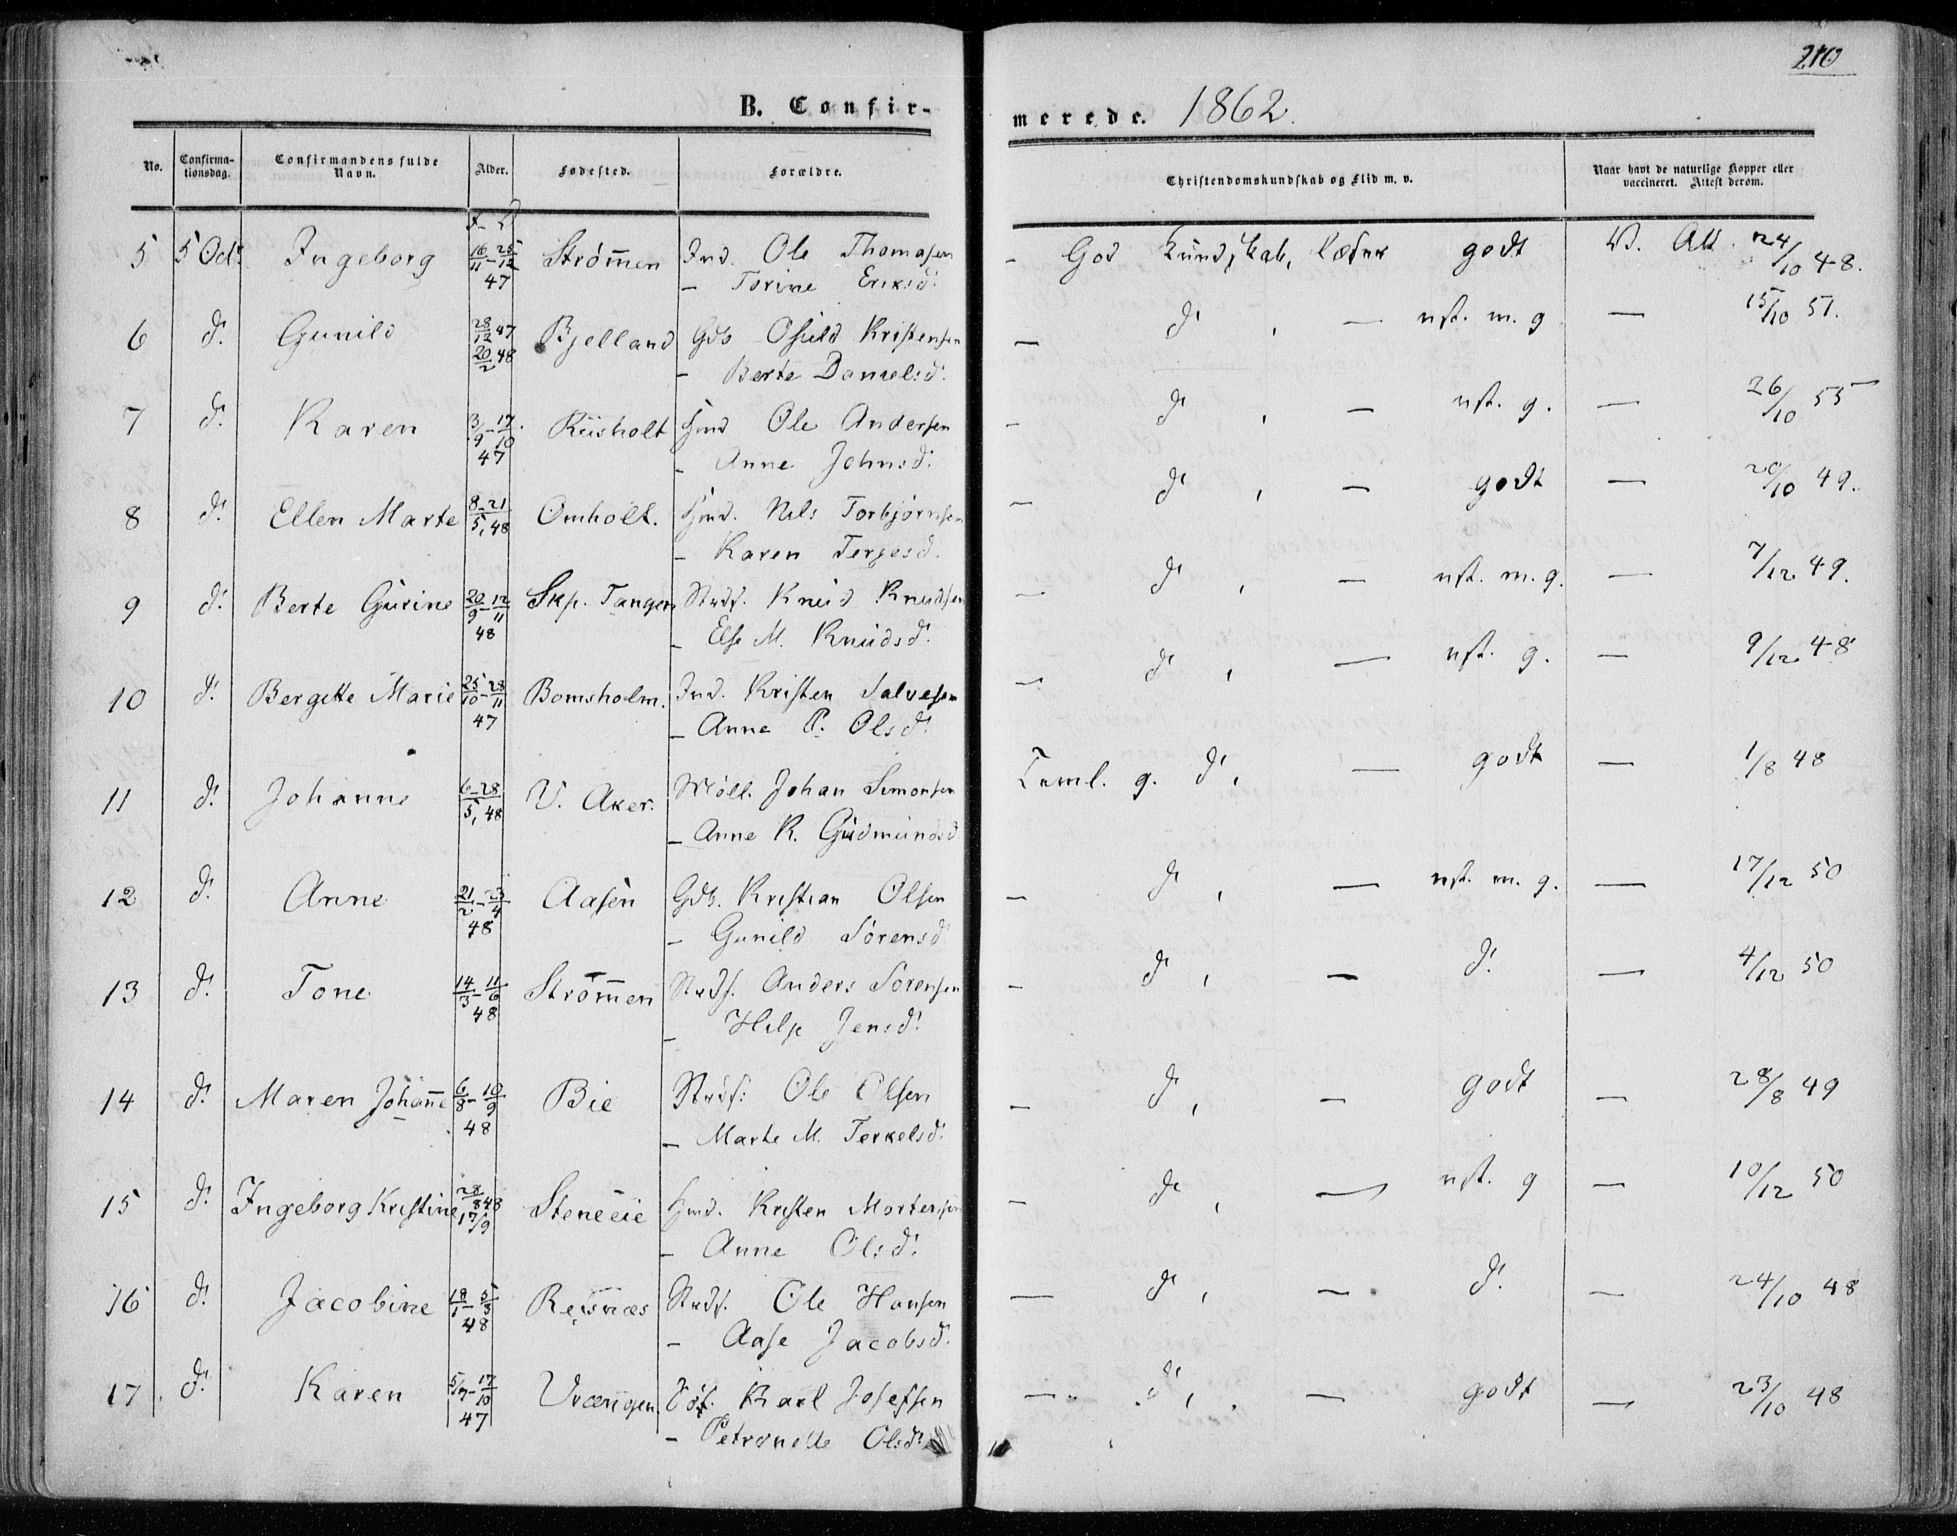 210
B. Confir-
merede. 1862.
No.
Confirma-
tionsdag.
Confirmandens fulde
Navn.
Alder.
Fødested.
Forældre.
Christendomskundskab og Flid m. v.
Naar havt de naturlige Kopper eller
vaccineret. Attest derom.
5 5 Oct. Ingeborg 16/11 - 25/12 47 Strømmen Ind. Ole Thomasen - God Kundskab, læser godt V. Att. 24/10 48.
- Torine Eriksd.
6 d. Gunild 28/12 47 20/2 48 Bjelland Gdb Osuld Kristensen - d , - nst. m. g - 15/10 51.
- Berte Danielsd.
7 d. Karen 3/9 - 17/10 47 Riisholt Hmd Ole Andersen - d , - nst. g. - 26/10 55
- Anne Johnsd.
8 d. Ellen Marte 8-21/5, 48 Omholt. Hmd. Nils Torbjørnsen - d , - godt - 20/10 49.
- Karen Tergesd.
9 d. Berte Gurine 20/9 - 12/11 48 Skp. Tangen Strdf. Knud Knudsen - d , - nst. m. g. - 7/12 49.
- Else M. Knudsd.
10 d. Bergitte Marie 25/10 - 28/11 47 Bomsholm. Ind. Kristen Salvesen - d , - nst. g. - 9/12 48
- Anne P. Olsd.
11 d. Johanne 6-28/5, 48 V. Aker. Møll. Johan Simonsen Teml. g. d , - godt - 1/8 48
- Anne K. Gudmundsd
12 d. Anne 21/2 - 23/4 48 Aasen Gdb. Kristian Olsen - d , - nst. m. g. - 17/12 50
- Gunild Sørensd
13 d. Tone 14/3 - 11/6 48 Strømmen Strdf. Anders Sørensen - d , - d. - 4/12 50
- Helje Jensd.
14 d. Maren Johanne 6/8 - 10/9 48 Bie Strdf. Ole Olsen - d , - godt - 28/8 49
- Marte M. Terkelsd.
15 d. Ingeborg Kristine 28/8 48 17/9 Steneeie Hmd. Kristen Mortensen - d , - nst. g - 10/12 50
- Anne Olsd.
16 d. Jacobine 18/1 - 5/3 48 Reisnæs Strdf. Ole Hansen - d , - d. - 24/10 48
- Aase Jacobsd.
17 d. Karen 5/9 - 17/10 47 Vrængen. Karl Josefsen - d , - godt - 23/10 48
- Petronelle Olsd.